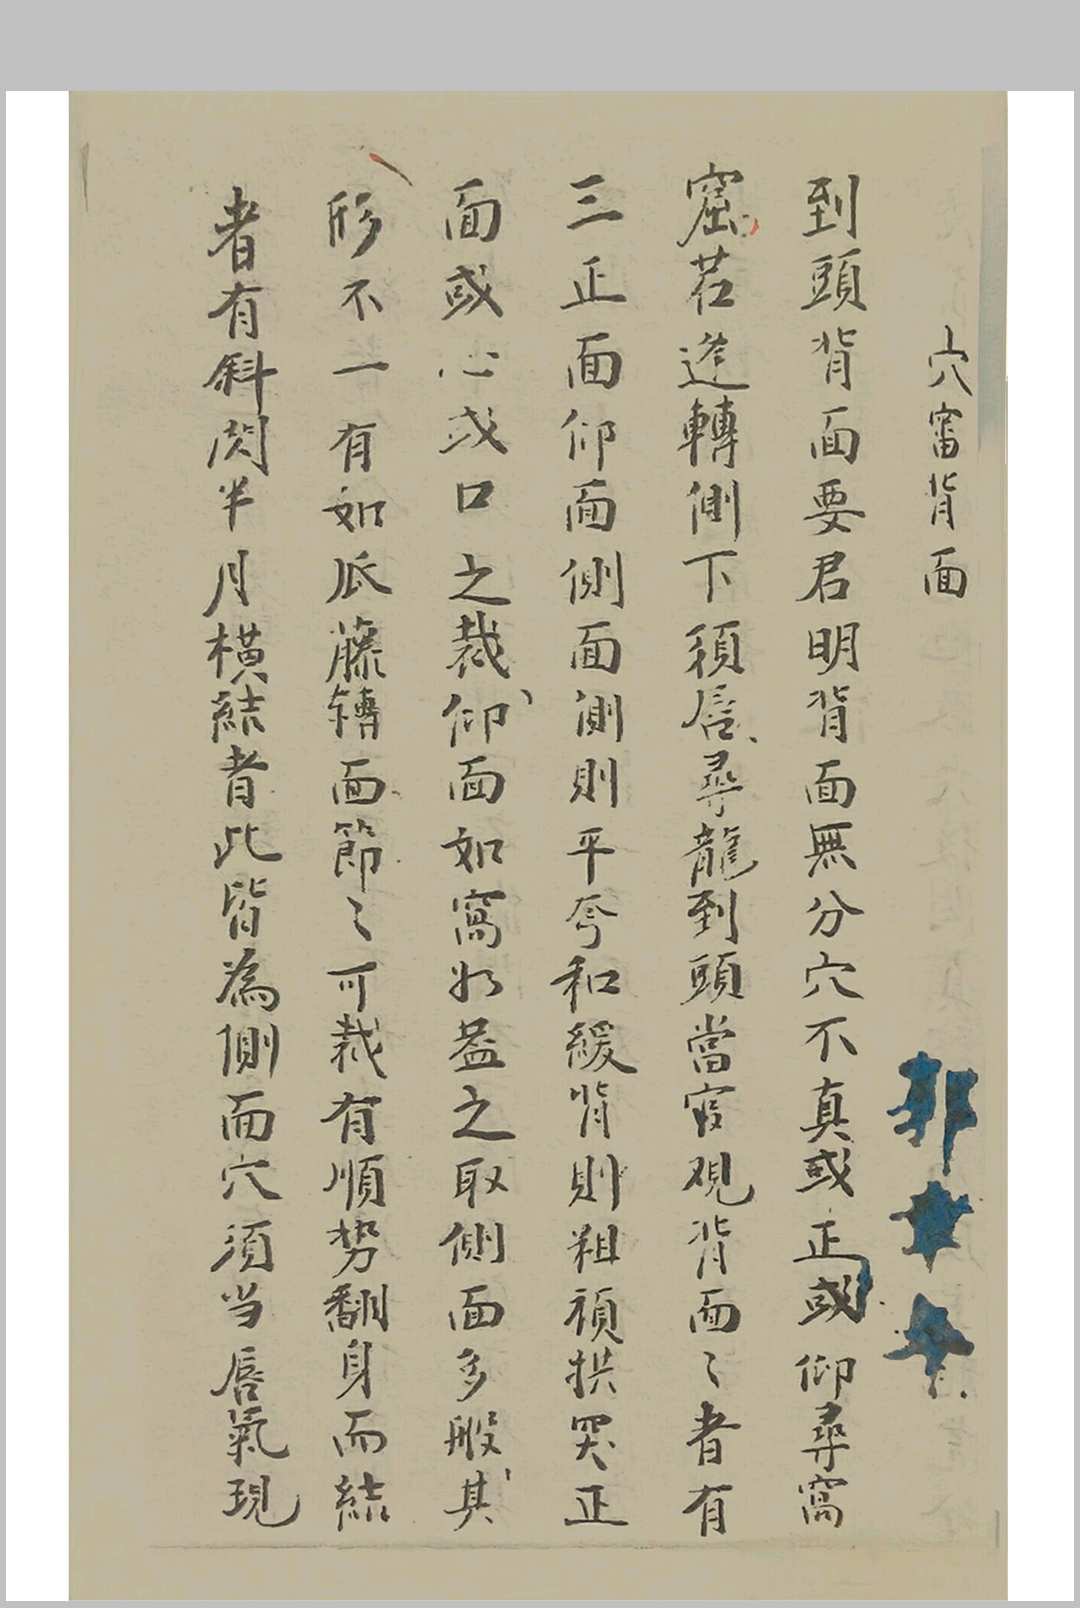 穴審背面
到頭背面要君明背面無分穴不真或正或仰尋窩
窟若逆轉側下須唇尋龍到頭當穴观背面〻者有
三正面仰面側面側則平夸和緩背則粗頑拱突正
面或心或口之裁仰面如窩如益之取側面多般其
形不一有如瓜藤轉面節〻可裁有順势翻身而結
者有斜閃半月横結者此皆為側面穴须当唇氣現
郭